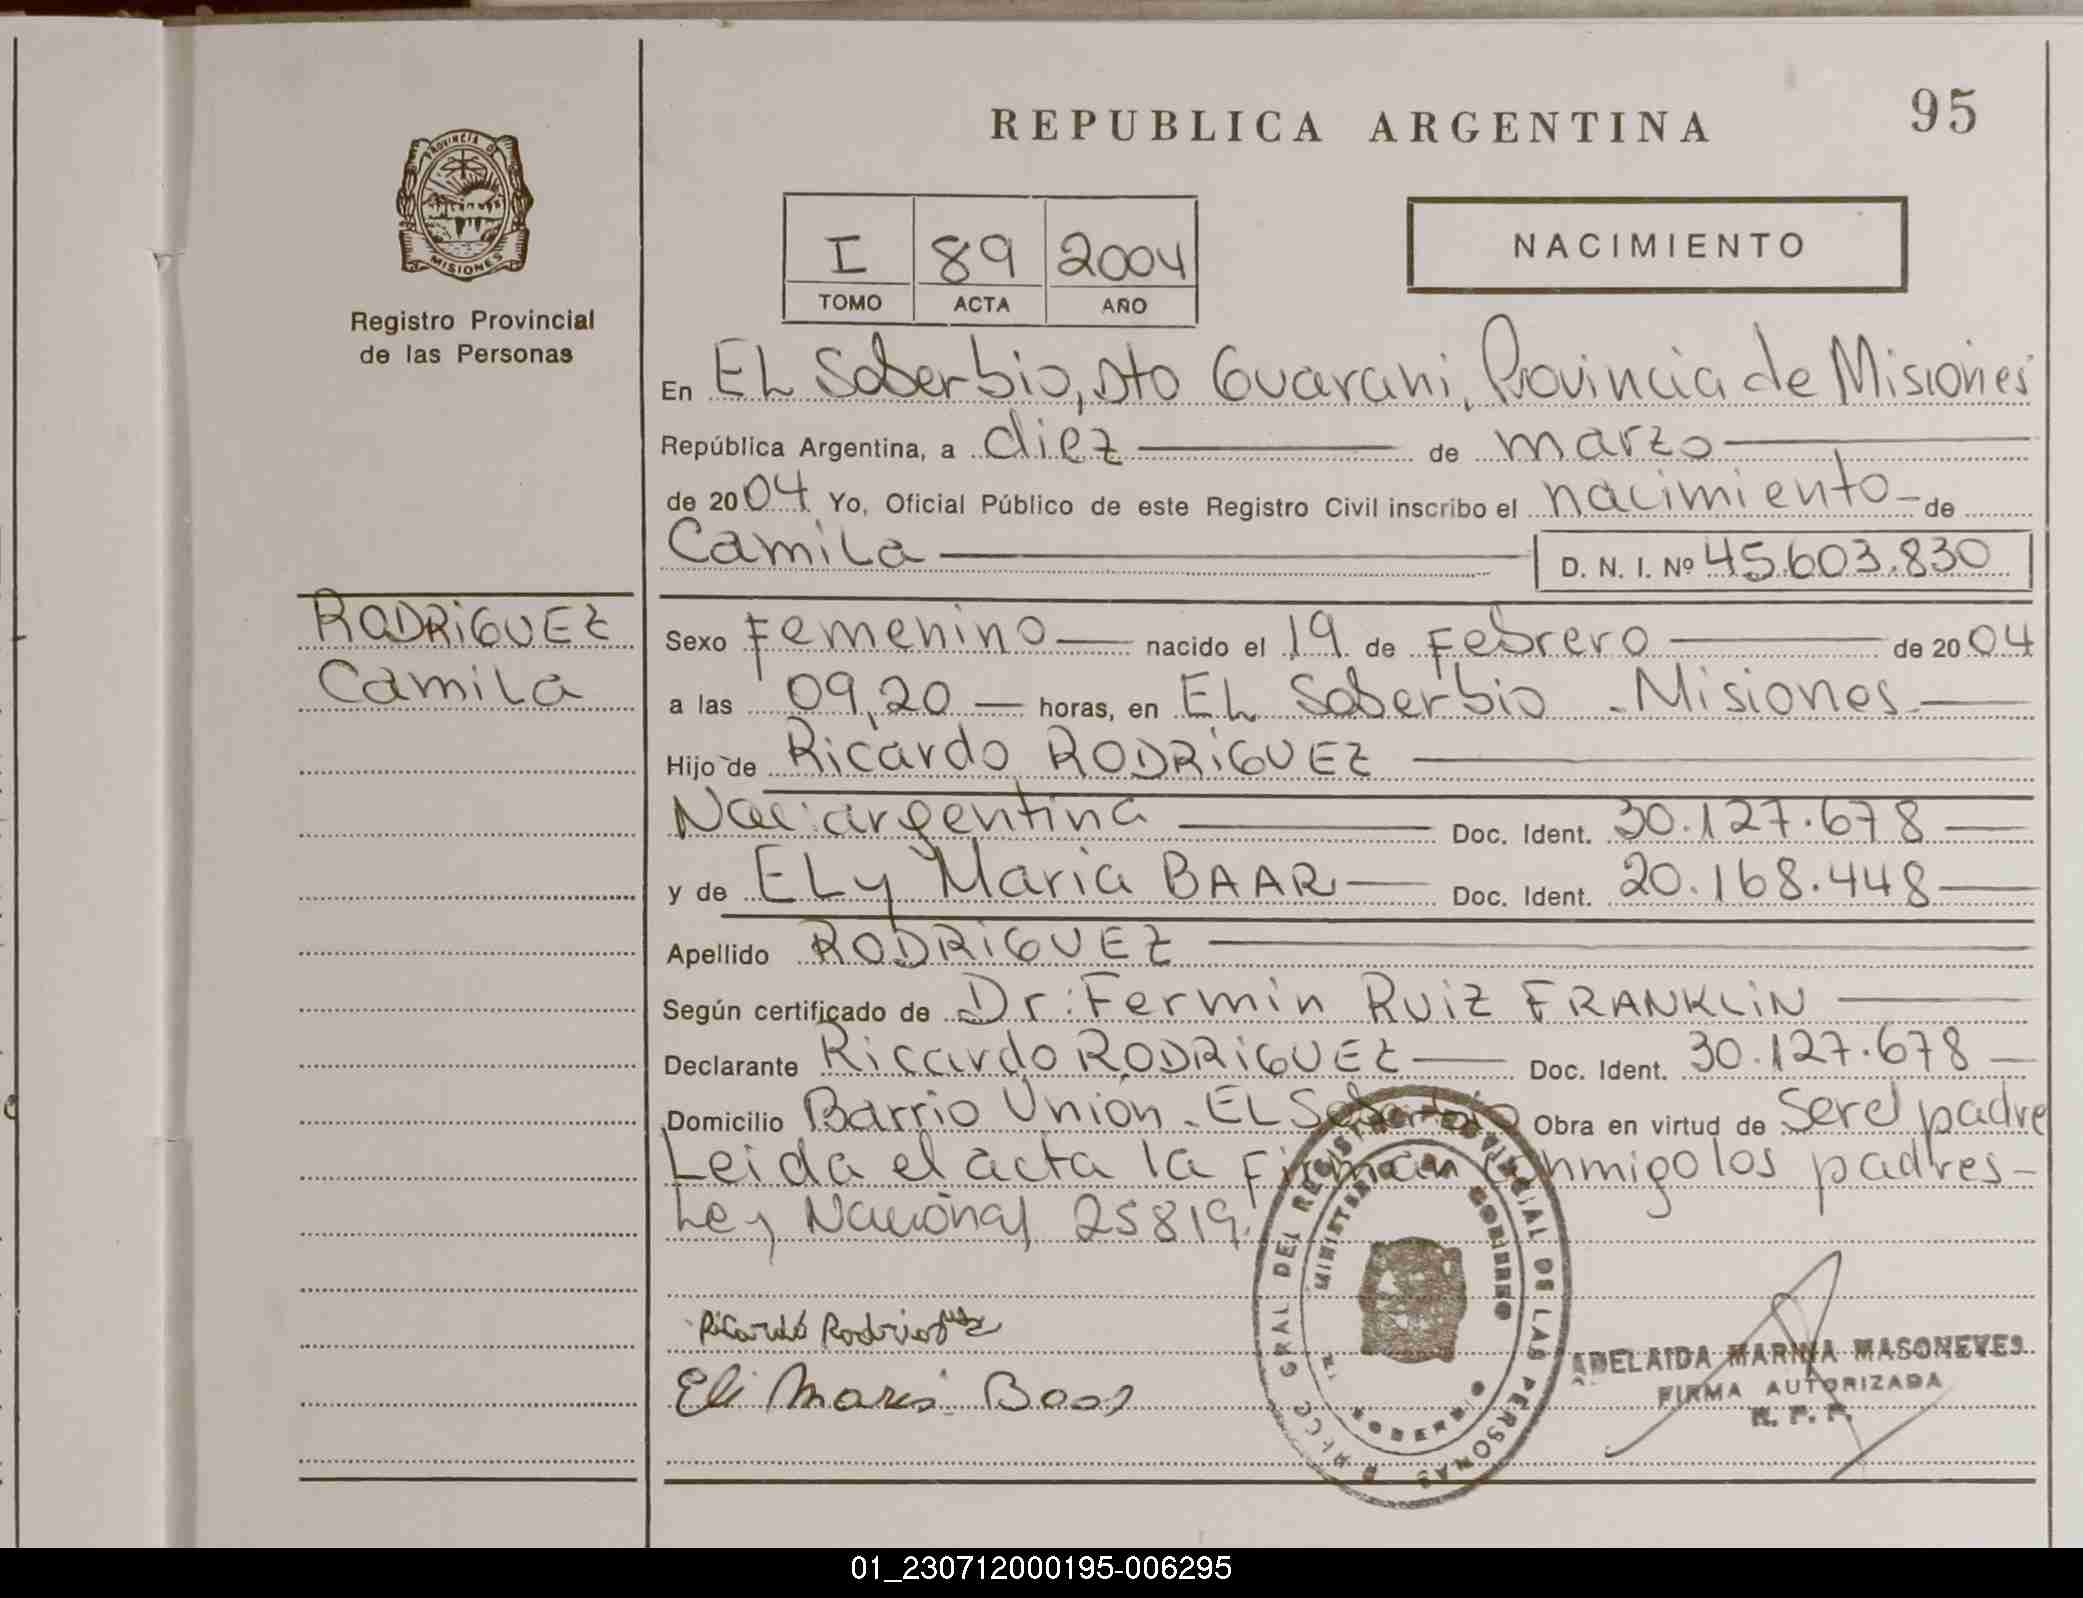 REPUBLICA ARGENTINA
95
PROVINCIA DE
MISIONES
Registro Provincial
de las Personas
I 89 2004
TOMO ACTA AÑO
NACIMIENTO
En EL Soberbio, Dto Guarani, Provincia de Misiones
República Argentina, a diez de marzo
de 2004 Yo, Oficial Público de este Registro Civil inscribo el nacimiento de
Camila D. N. I. Nº 45.603.830
RODRIGUEZ
Camila
Sexo Femenino nacido el 19 de Febrero de 2004
a las 09,20 horas, en EL Soberbio - Misiones
Hijo de Ricardo RODRIGUEZ
Nac: argentina Doc. Ident. 30.127.678
y de ELy Maria BAAR Doc. Ident. 20.168.448
Apellido RODRIGUEZ
Según certificado de Dr: Fermin RUIZ FRANKLIN
Declarante Ricardo RODRIGUEZ Doc. Ident. 30.127.678
Domicilio Barrio Union - EL Soberbio Obra en virtud de Ser el padre
Leida el acta la Firman conmigo los padres-
Ley Nacional 25819.
Ricardo Rodriguez
Eli Maria
DIRECC GRAL DEL REGISTRO PROVINCIAL DE LAS PERSONAS
MINISTERIO DE GOBIERNO
ADELAIDA MARINA MASONEVES
FIRMA AUTORIZADA
R. P. P.
01_230712000195-006295